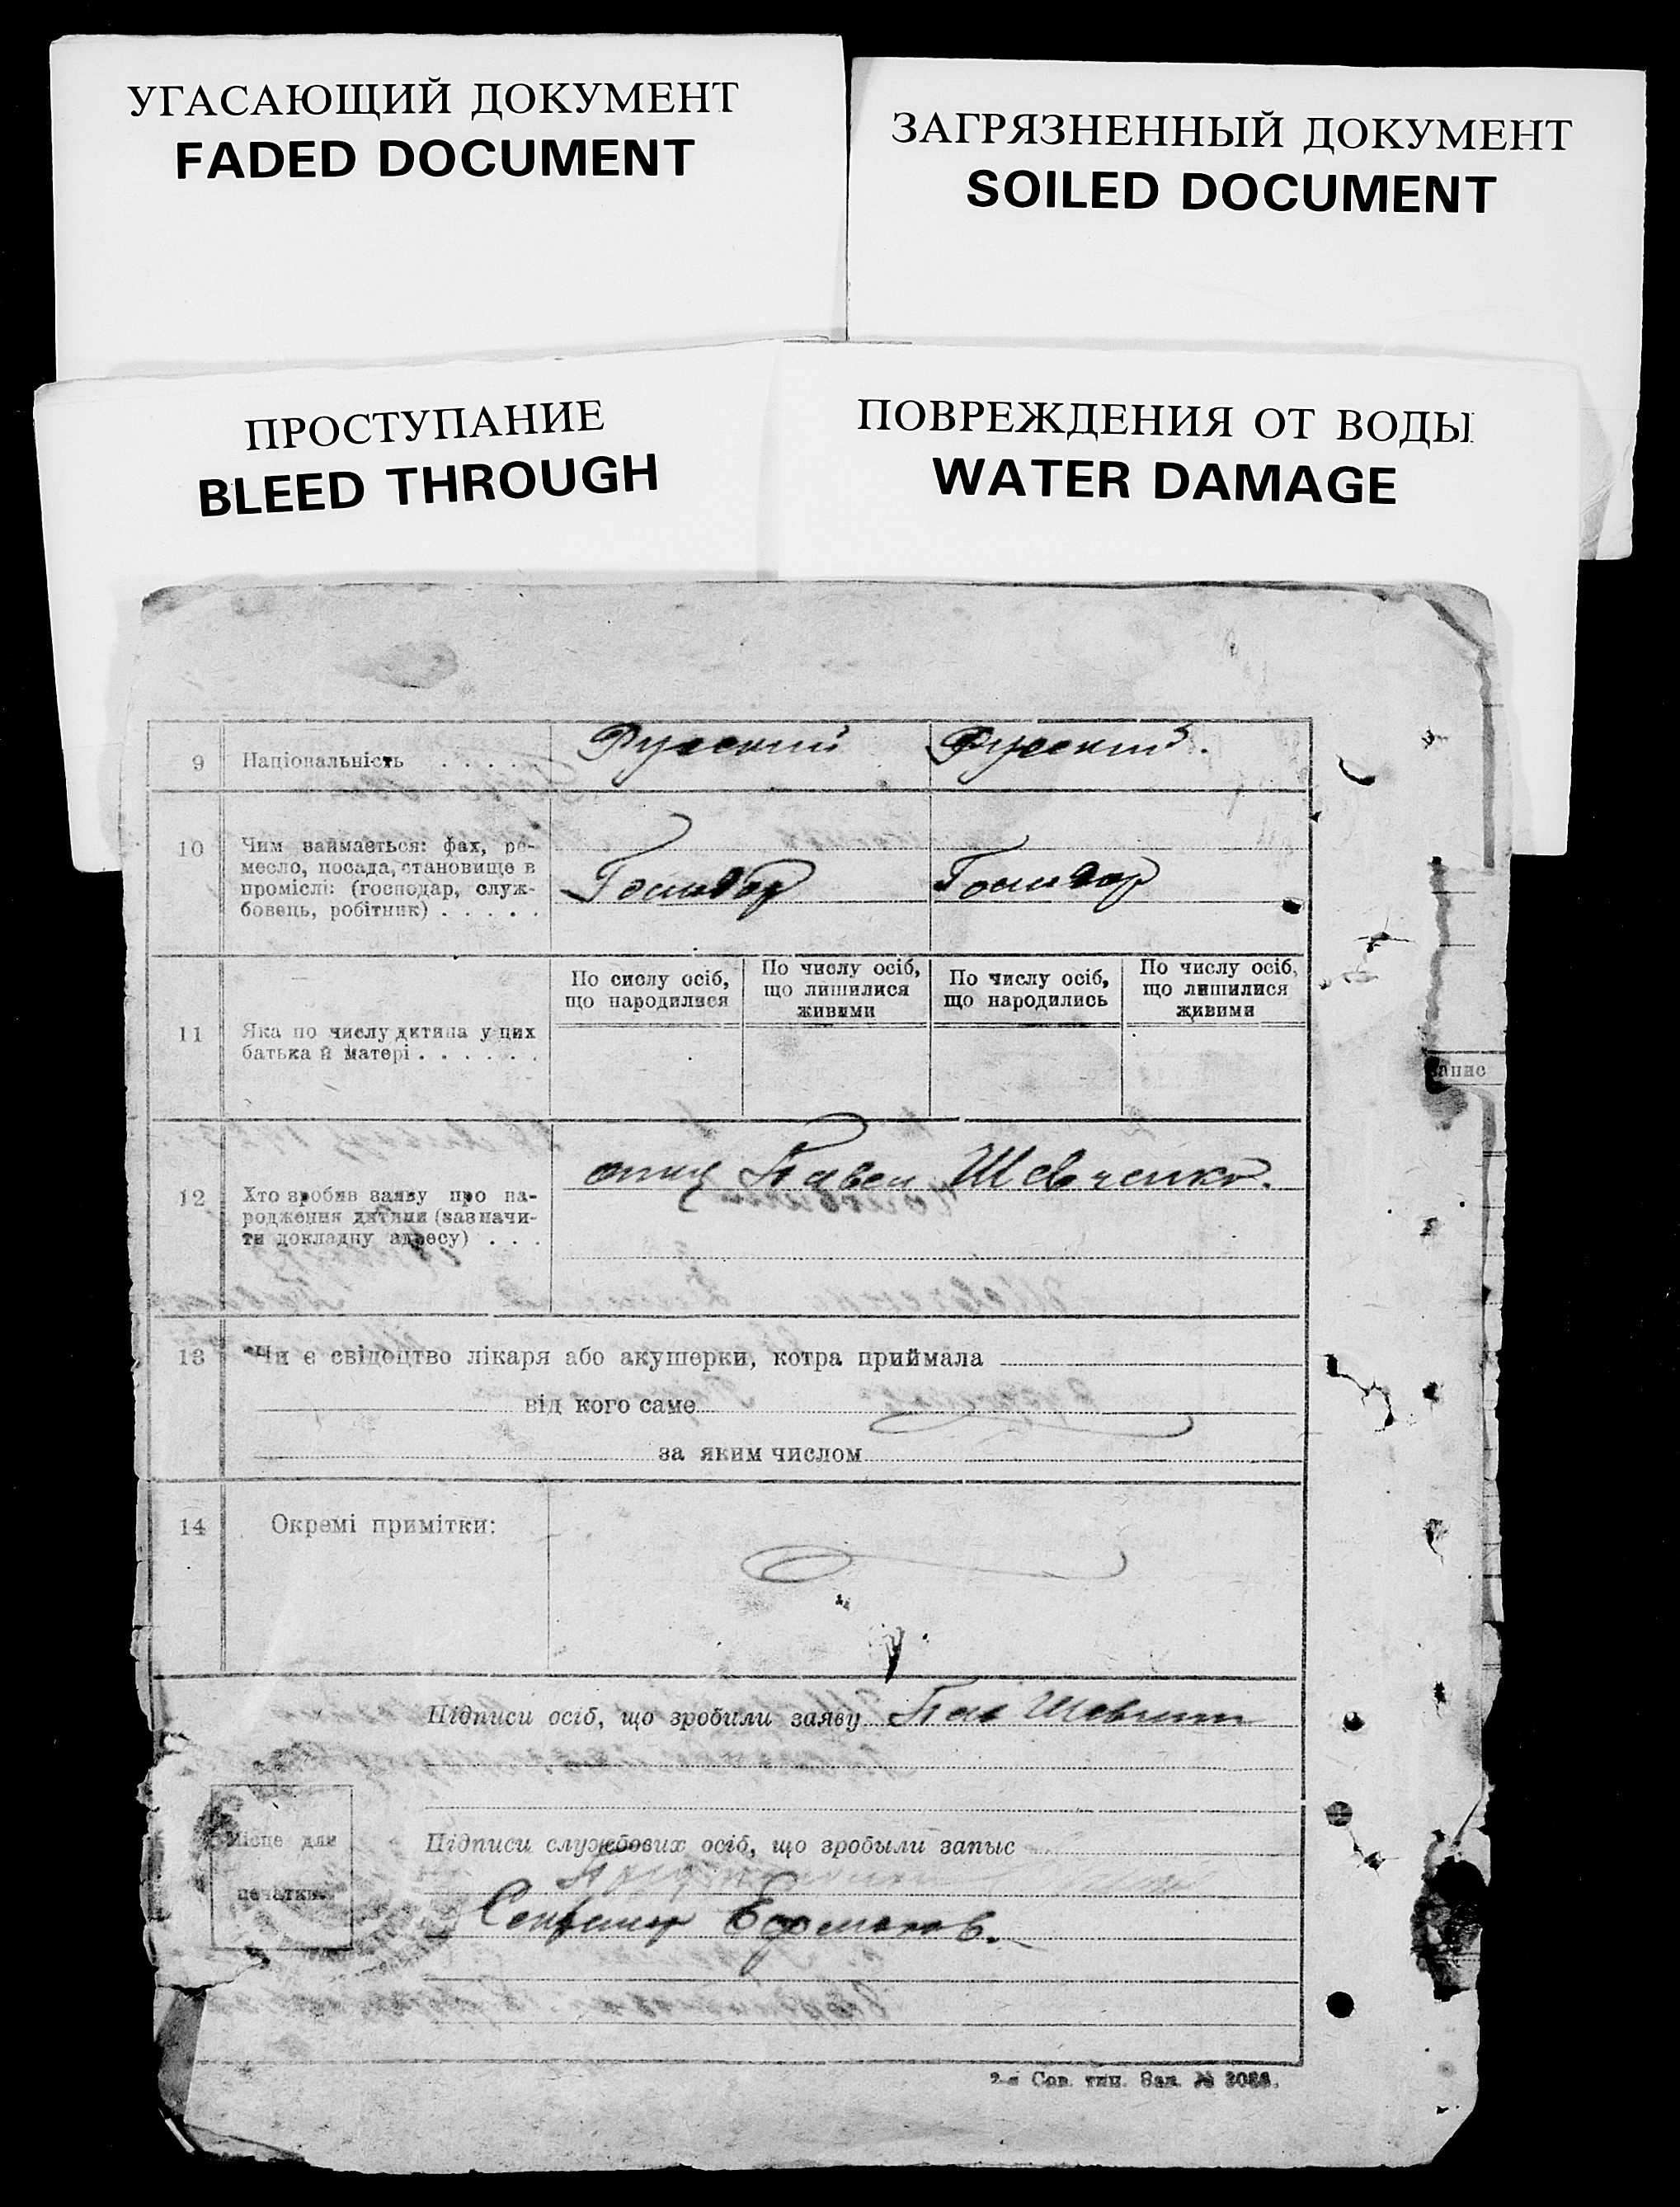 УГАСАЮЩИЙ ДОКУМЕНТ
FADED DOCUMENT
ЗАГРЯЗНЕННЫЙ ДОКУМЕНТ
SOILED DOCUMENT
ПРОСТУПАНИЕ
BLEED THROUGH
ПОВРЕЖДЕНИЯ ОТ ВОДЫ
WATER DAMAGE
9 Національність . . . . . Русский Русский.
10 Чим займається: фах, ре-
месло, посада, становище в
промислі: (господар, служ-
бовець, робітник) . . . . . Господар Господар
11 Яка по числу дитина у цих
батька й матері . . . . . .
По сислу осіб,
що народилися
По числу осіб,
що лишилися
живими
По числу осіб,
що народились
По числу осіб,
що лишилися
живими
апис
12 Хто зробив заяву про на-
родження дитини (зазначи-
ти докладну адресу) . . .
отец Павел Шевченко.
13 Чи є свідоцтво лікаря або акушерки, котра приймала
від кого саме
за яким числом
14 Окремі примітки:
Підписи осіб, що зробили заяву Пав Шевченко
Місце для
печатки
Підписи службових осіб, що зробыли запыс
Секретар Ефремов.
2-а Сов. тип. Зак. №